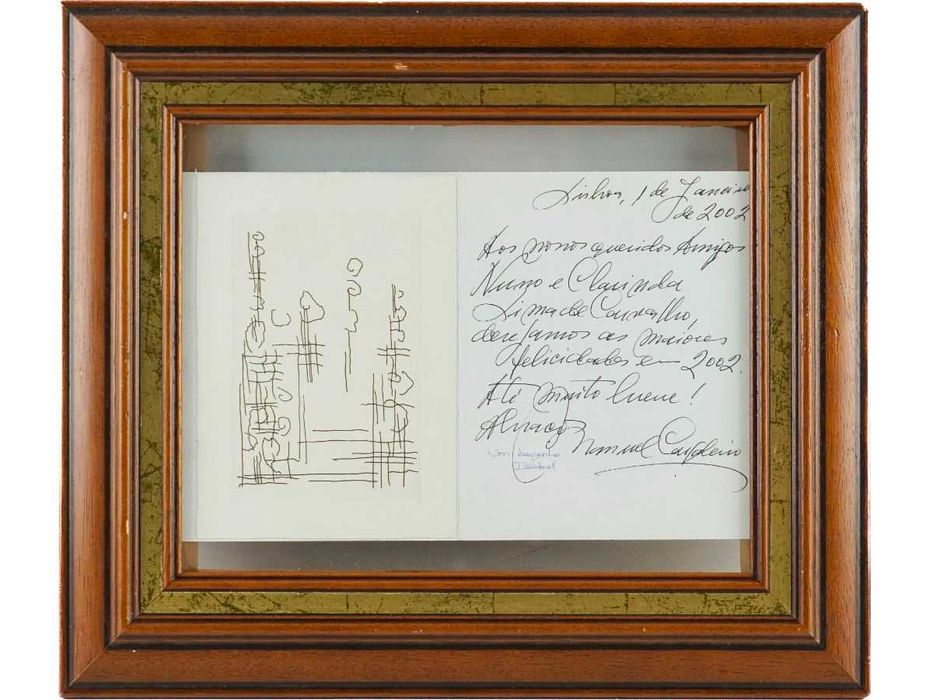 Lisboa, 1 de Janeiro
de 2002
Aos nossos queridos Amigos
Nuno e Clarinda
Lima de Carvalho,
desejamos as maiores
felicidades em 2002.
Até muito breve!
Abraços
Manuel Cargaleiro
Isabel